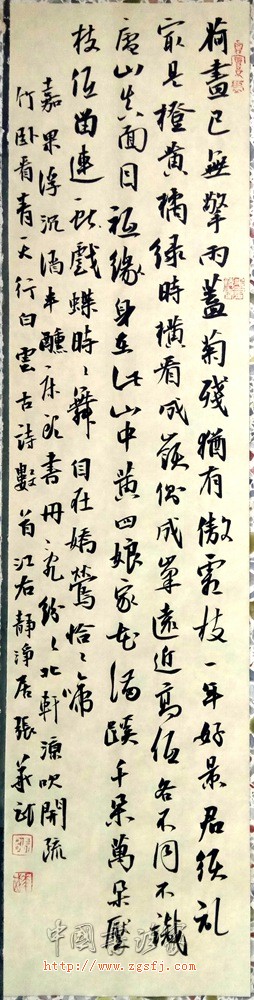 荷盡已無擎雨蓋菊殘猶有傲霜枝一年好景君須礼
最是橙黄橘绿時横看成嶺側成峯遠近高低各不同不識
庐山真面目祗緣身在此山中黄四娘家花满蹊千朵萬朵壓
枝低留連戲蝶時々舞自在嬌鶯恰々啼
嘉果浮沉酒半醺床頭書冊亂紛々北軒凉吹開疏
竹卧看青天行白雲古詩數首江右靜淨居張
中国书法家
http://www.zgsfj.com